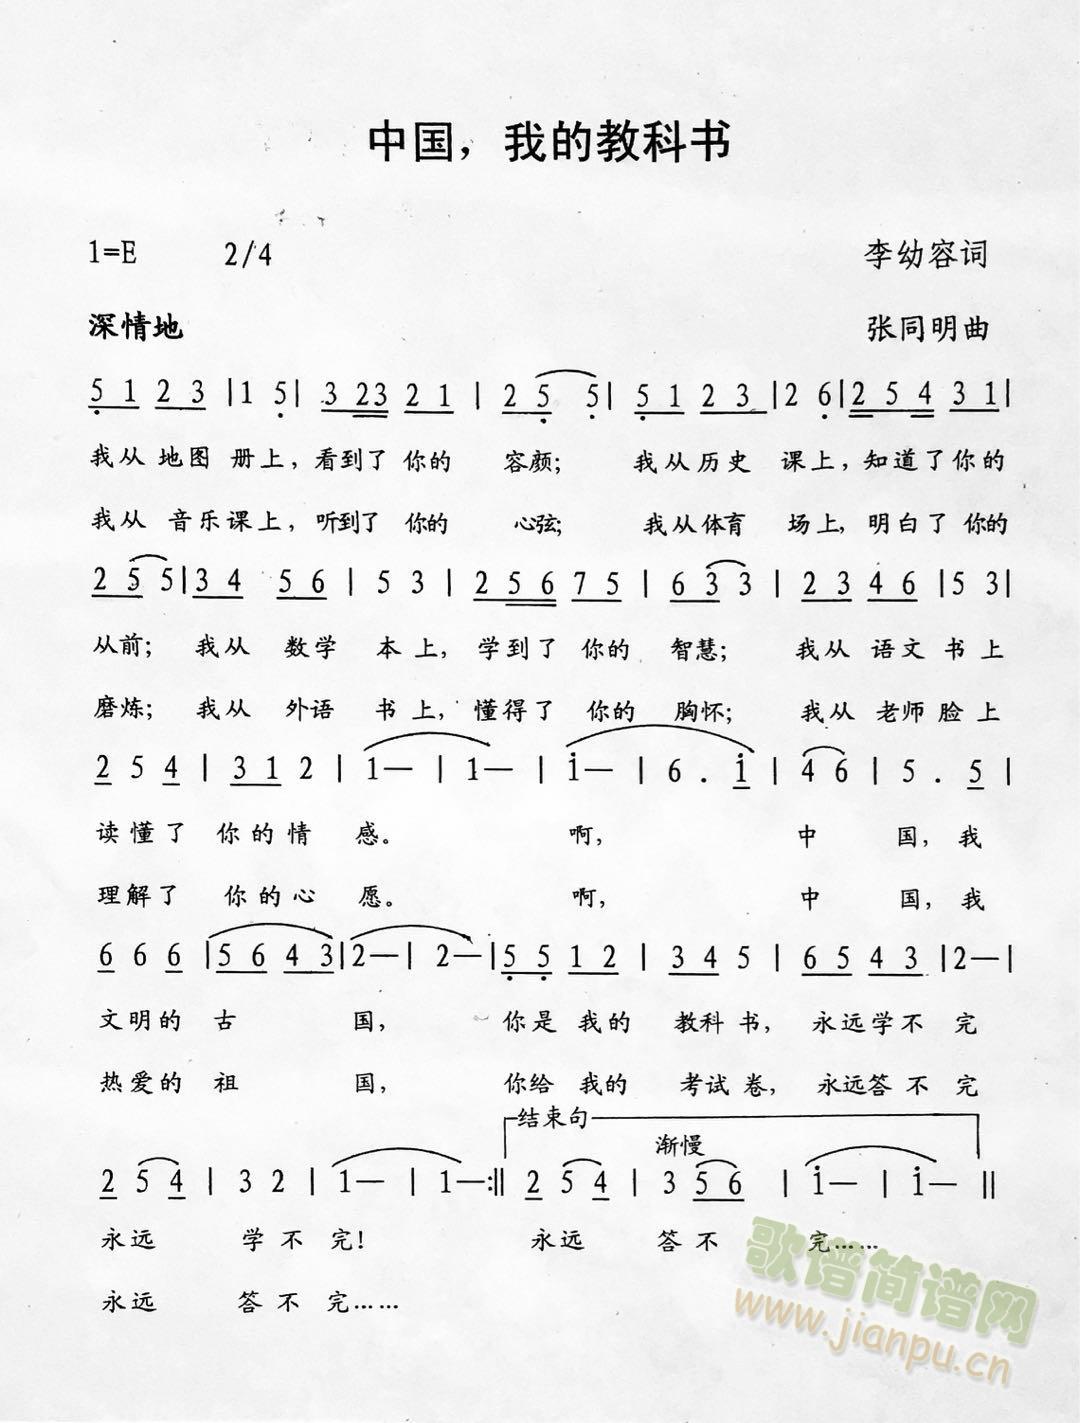 中国，我的教科书
1=E 2/4 李幼容词
深情地 张同明曲
5 1 2 3 |1 5| 3 23 2 1 | 2 5 5| 5 1 2 3 |2 6|2 5 4 3 1|
我从 地图 册上，看到了 你的 容颜； 我从历史 课上，知道了你的
我从 音乐课上，听到了 你的 心弦； 我从体育 场上，明白了你的
2 5 5|3 4 5 6 | 5 3 | 2 5 6 7 5 | 6 3 3 | 2 3 4 6 |5 3|
从前； 我从 数学 本上，学到了 你的 智慧； 我从 语文 书上
磨炼； 我从 外语 书上，懂得了 你的 胸怀； 我从 老师脸上
2 5 4 | 3 1 2 | 1— | 1— | i— | 6 . i | 4 6 | 5 . 5 |
读懂了 你的情 感。 啊， 中 国，我
理解了 你的心 愿。 啊， 中 国，我
6 6 6 |5 6 4 3|2—| 2—|5 5 1 2 | 3 4 5 | 6 5 4 3 |2—|
文明的 古 国， 你是 我的 教科书，永远学不 完
热爱的 祖 国， 你给 我的 考试卷，永远答不 完
结束句
渐慢
2 5 4 | 3 2 | 1— | 1—:‖ 2 5 4 | 3 5 6 | i— | i— ‖
永远 学不 完！ 永远 答不 完……
永远 答不 完……
歌谱简谱网
www.jianpu.cn